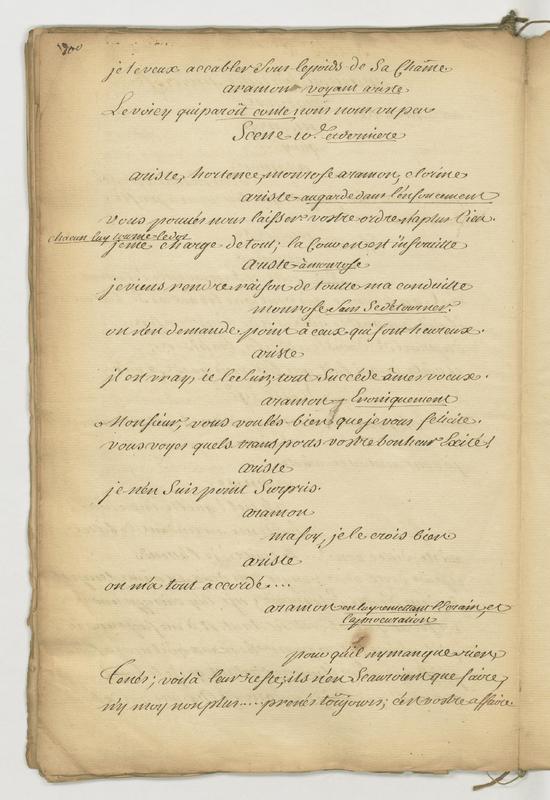 je le veux accabler sous le poids de sa chaîne
aramon voyant ariste
Le voicy qui paroît
Scene 10.e et derniere
ariste, hortence, monrose aramon, clorine
ariste au garde dans l'enfoncement
vous pouvés nous laisser vostre ordre n'a plus lieu
chacun luy tourne le dos
je me charge de tout; la Cour en est instruitte
ariste à monrose
je viens rendre raison de toutte ma conduitte
monrose sans se détourner.
on n'en demande point à ceux qui sont heureux.
ariste
il est vray, je le suis; tout succéde à mes voeux.
aramon Ironiquement
Monsieur, vous voulés bien que je vous felicite.
vous voyes quels transports vostre bonheur Exite!
ariste
je n'en suis point surpris.
aramon
ma foy, je le crois bien
ariste
on m'a tout accordé...
aramon en luy remettant l'Ecrain, et
la procuration
pour qu'il n'y manque rien,
Tenés; voilà leur reste; ils n'en sçauroient que faire,
n'y moy non plus.... prenés toûjours; c'est vostre affaire.